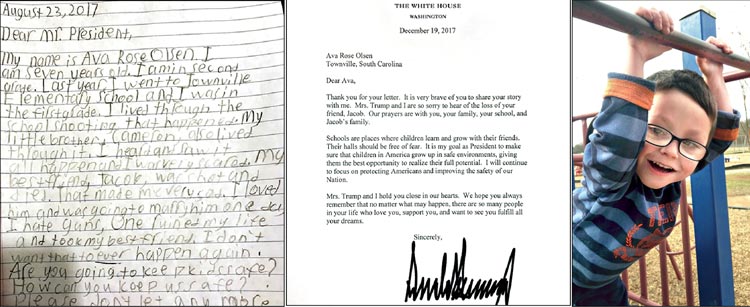 August 23, 2017
Dear Mr. President,
My name is Ava Rose Olsen. I
am seven years old. I am in second
grade. Last year, I went to Townville
Elementary School and I was in
the first grade. I lived through the
school shooting that happened. My
little brother, Cameron, also lived
through it. I heard and saw it
all happen and I was very scared. My
best friend, Jacob, was shot and
died. That made me very sad. I loved
him and was going to marry him one day.
I hate guns. One ruined my life
and took my best friend. I don't
want that to ever happen again.
Are you going to keep kids safe?
How can you keep us safe?
Please don't let any more
THE WHITE HOUSE
WASHINGTON
December 19, 2017
Ava Rose Olsen
Townville, South Carolina
Dear Ava,
Thank you for your letter. It is very brave of you to share your
story with me. Mrs. Trump and I are so sorry to hear of the loss of your
friend, Jacob. Our prayers are with you, your family, your school, and
Jacob's family.
Schools are places where children learn and grow with their friends.
Their halls should be free of fear. It is my goal as President to make
sure that children in America grow up in safe environments, giving
them the best opportunity to realize their full potential. I will continue
to focus on protecting Americans and improving the safety of our
Nation.
Mrs. Trump and I hold you close in our hearts. We hope you always
remember that no matter what may happen, there are so many people
in your life who love you, support you, and want to see you fulfill all
your dreams.
Sincerely,